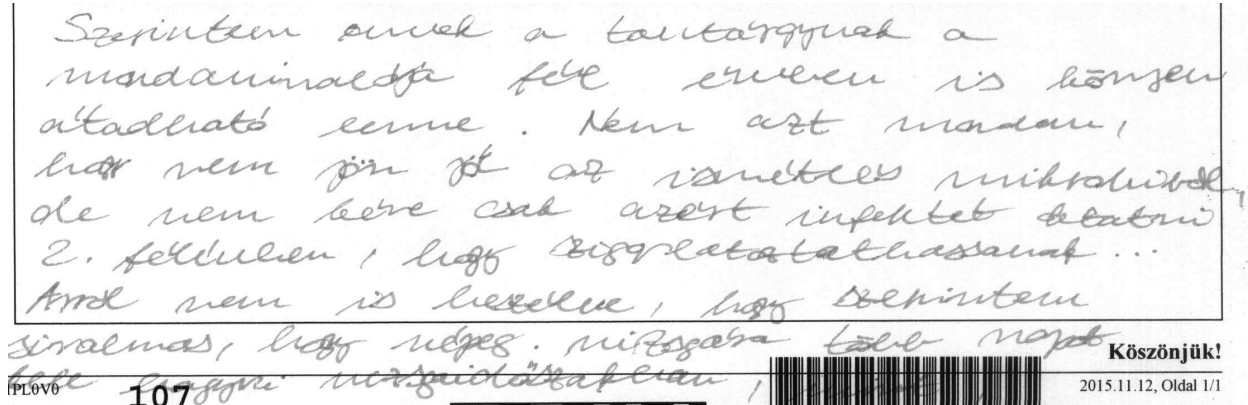 Szerintem ennek a tantárgynak a
mondanivalója fél évben is könnyen
átadható lenne. Nem azt mondom,
hogy nem jön jól az ismétlés mikroökoból,
de nem kéne csak azért oktatni
2. félévben, hogy szigorlatoztathassanak...
Arról nem is beszélve, hogy szerintem
siralmas, hogy népeg. vizsgára több napot
kell hagyni vizsgaidőszakban,
Köszönjük!
PL0V0 107 2015.11.12, Oldal 1/1